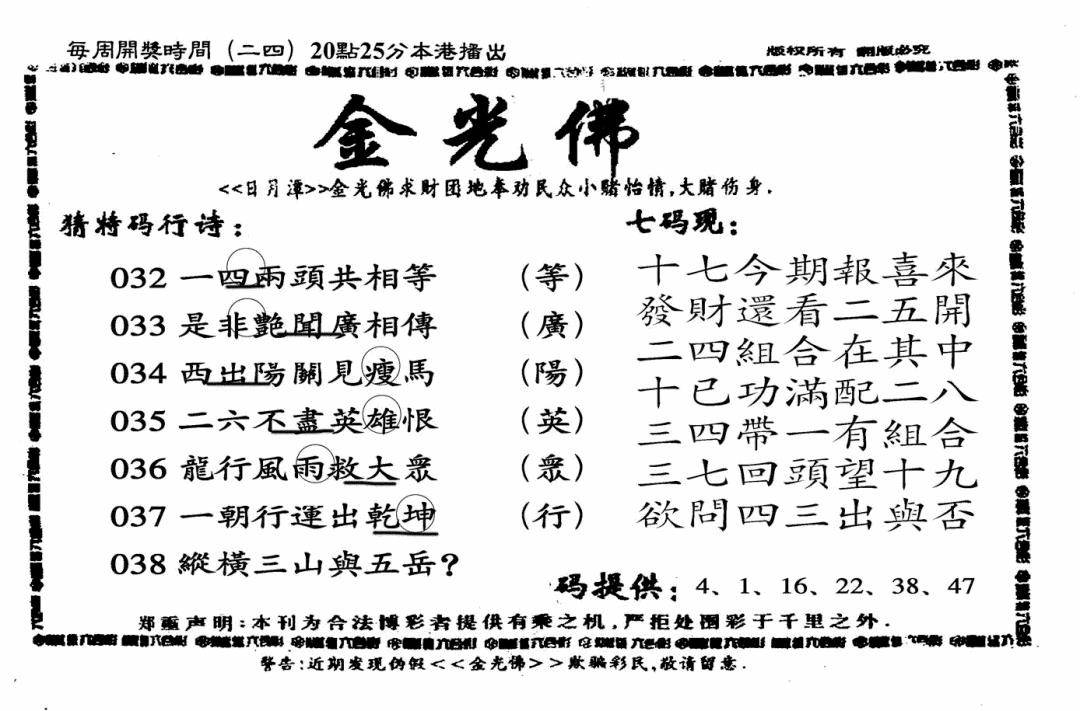 每周開獎時間（二四）20點25分本港播出
版权所有 翻版必究
金光佛
<<日月潭>>金光佛求财团地奉劝民众小赌怡情,大赌伤身.
猜特码行诗：
032 一四兩頭共相等 （等）
033 是非艷聞廣相傳 （廣）
034 西出陽關見瘦馬 （陽）
035 二六不盡英雄恨 （英）
036 龍行風雨救大眾 （眾）
037 一朝行運出乾坤 （行）
038 縱橫三山與五岳？
七码现：
十七今期報喜來
發財還看二五開
二四組合在其中
十已功滿配二八
三四帶一有組合
三七回頭望十九
欲問四三出與否
码提供：4、1、16、22、38、47
郑重声明:本刊为合法博彩者提供有乘之机,严拒处图彩于千里之外.
警告:近期发现伪假<<金光佛>>欺骗彩民,敬请留意.